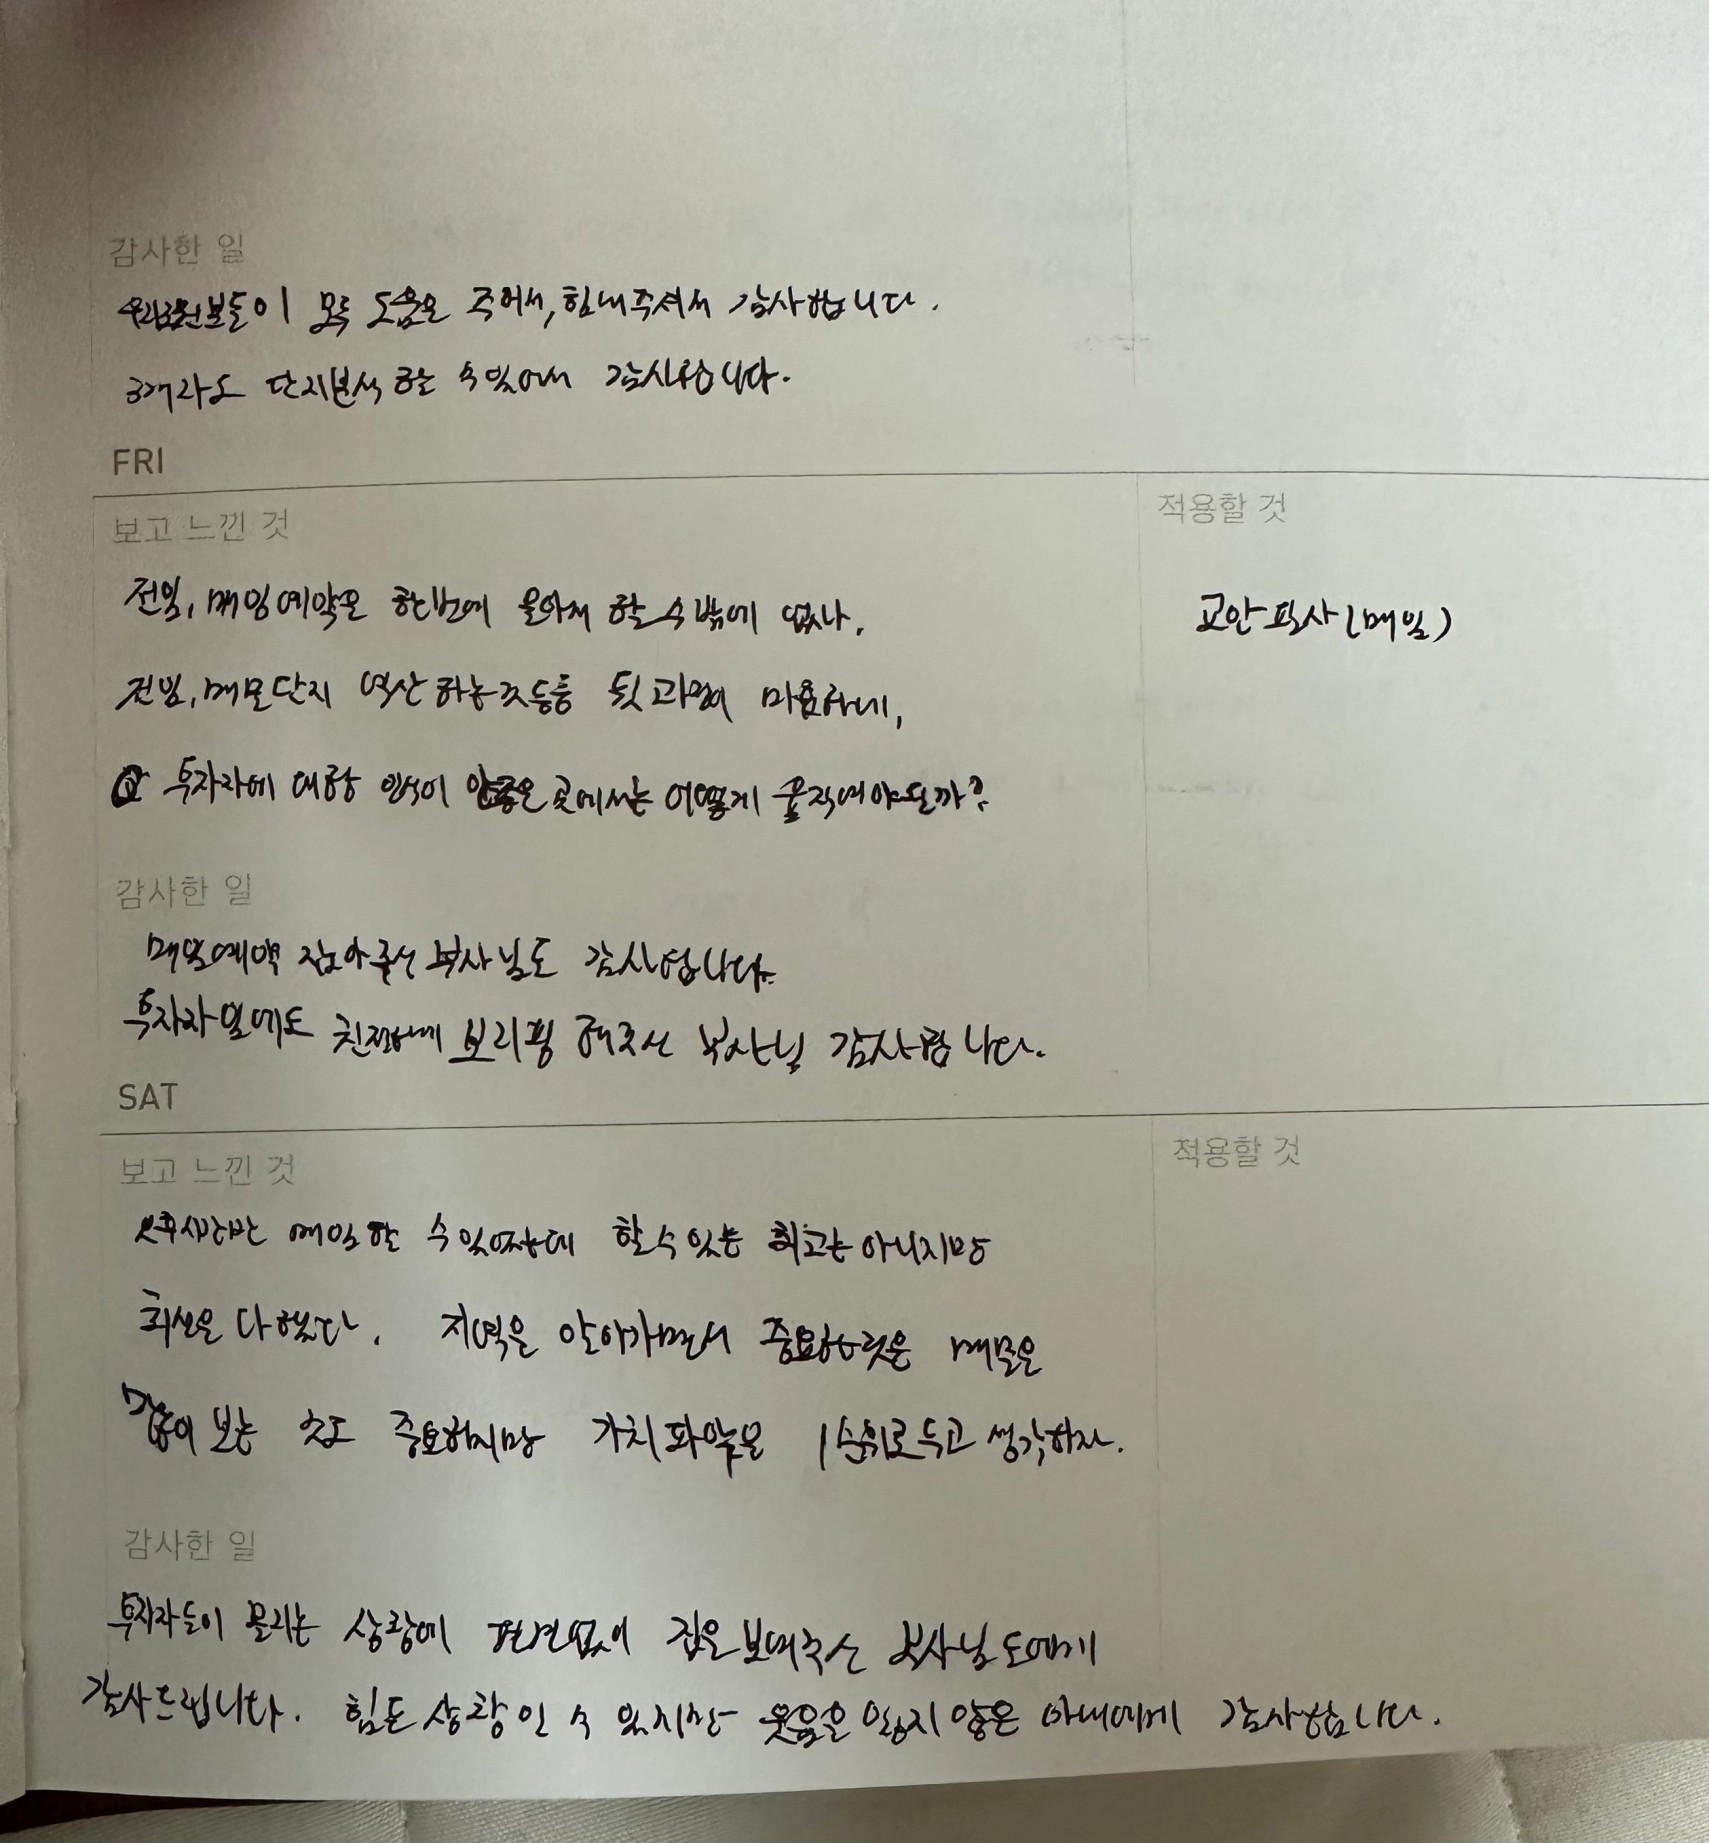 감사한 일
모두 도움을 주어서, 힘내주셔서 감사합니다.
3개라도 단지분석 할 수 있어서 감사합니다.
FRI
보고 느낀 것
적용할 것
전임, 매임예약은 한번에 몰아서 할 수 밖에 없나.
교안필사 (매일)
전임, 매물단지 역산하는 등등 뒷과정이 미흡하네,
Q 투자자에 대한 인식이 안좋은 곳에서는 어떻게 움직여야 될까?
감사한 일
매임예약 잡아주신 부사님도 감사합니다.
투자자임에도 친절하게 브리핑 해주신 부사님 감사합니다.
SAT
보고 느낀 것
적용할 것
매임할 수 있었는데 할 수 있는 최고는 아니지만
최선은 다했다. 지역을 알아가면서 중요한것은 매물을
많이 보는 것도 중요하지만 가치파악을 1순위로 두고 생각하자.
감사한 일
투자자들이 몰리는 상황에 편견없이 집을 보여주신 부사님도에게
감사드립니다. 힘든 상황일 수 있지만 웃음을 잃지 않은 아내에게 감사합니다.